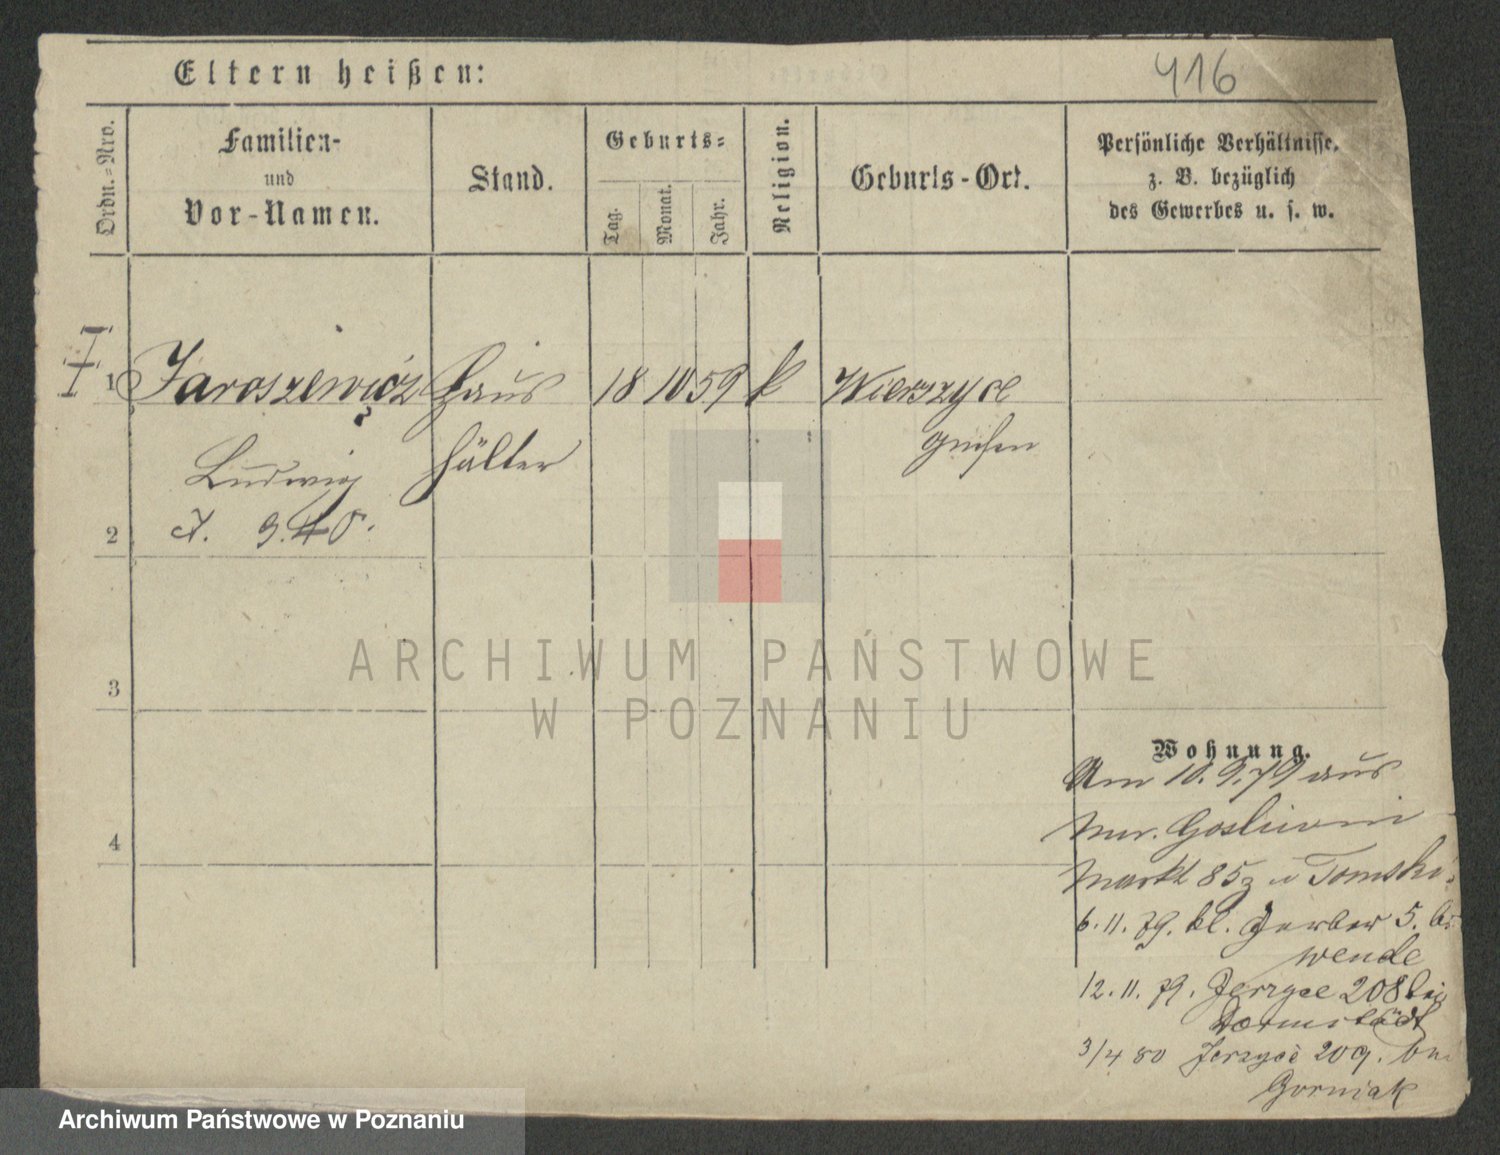 416
Eltern heißen:
Ordn.=Nro.
Familien-
und
Vor-Namen.
Stand.
Geburts=
Tag.
Monat.
Jahr.
Religion.
Geburts-Ort.
Persönliche Verhältnisse,
z. B. bezüglich
des Gewerbes u. s. w.
1 Jaroszewicz Haus 18 10 59 k Wierszyce
Ludwig hälter Gnesen
2
3
4
ARCHIWUM PAŃSTWOWE
W POZNANIU
Wohnung.
Am 10.9.79 aus
Mur. Goslin
Markt 85 Tomski
6.11.79. kl. Gerber 5. bei
Wende
12.11.79. Jerzyce 208 bei
Darmstädt
3/4 80 Jerzyce 209. bei
Gorniak
Archiwum Państwowe w Poznaniu